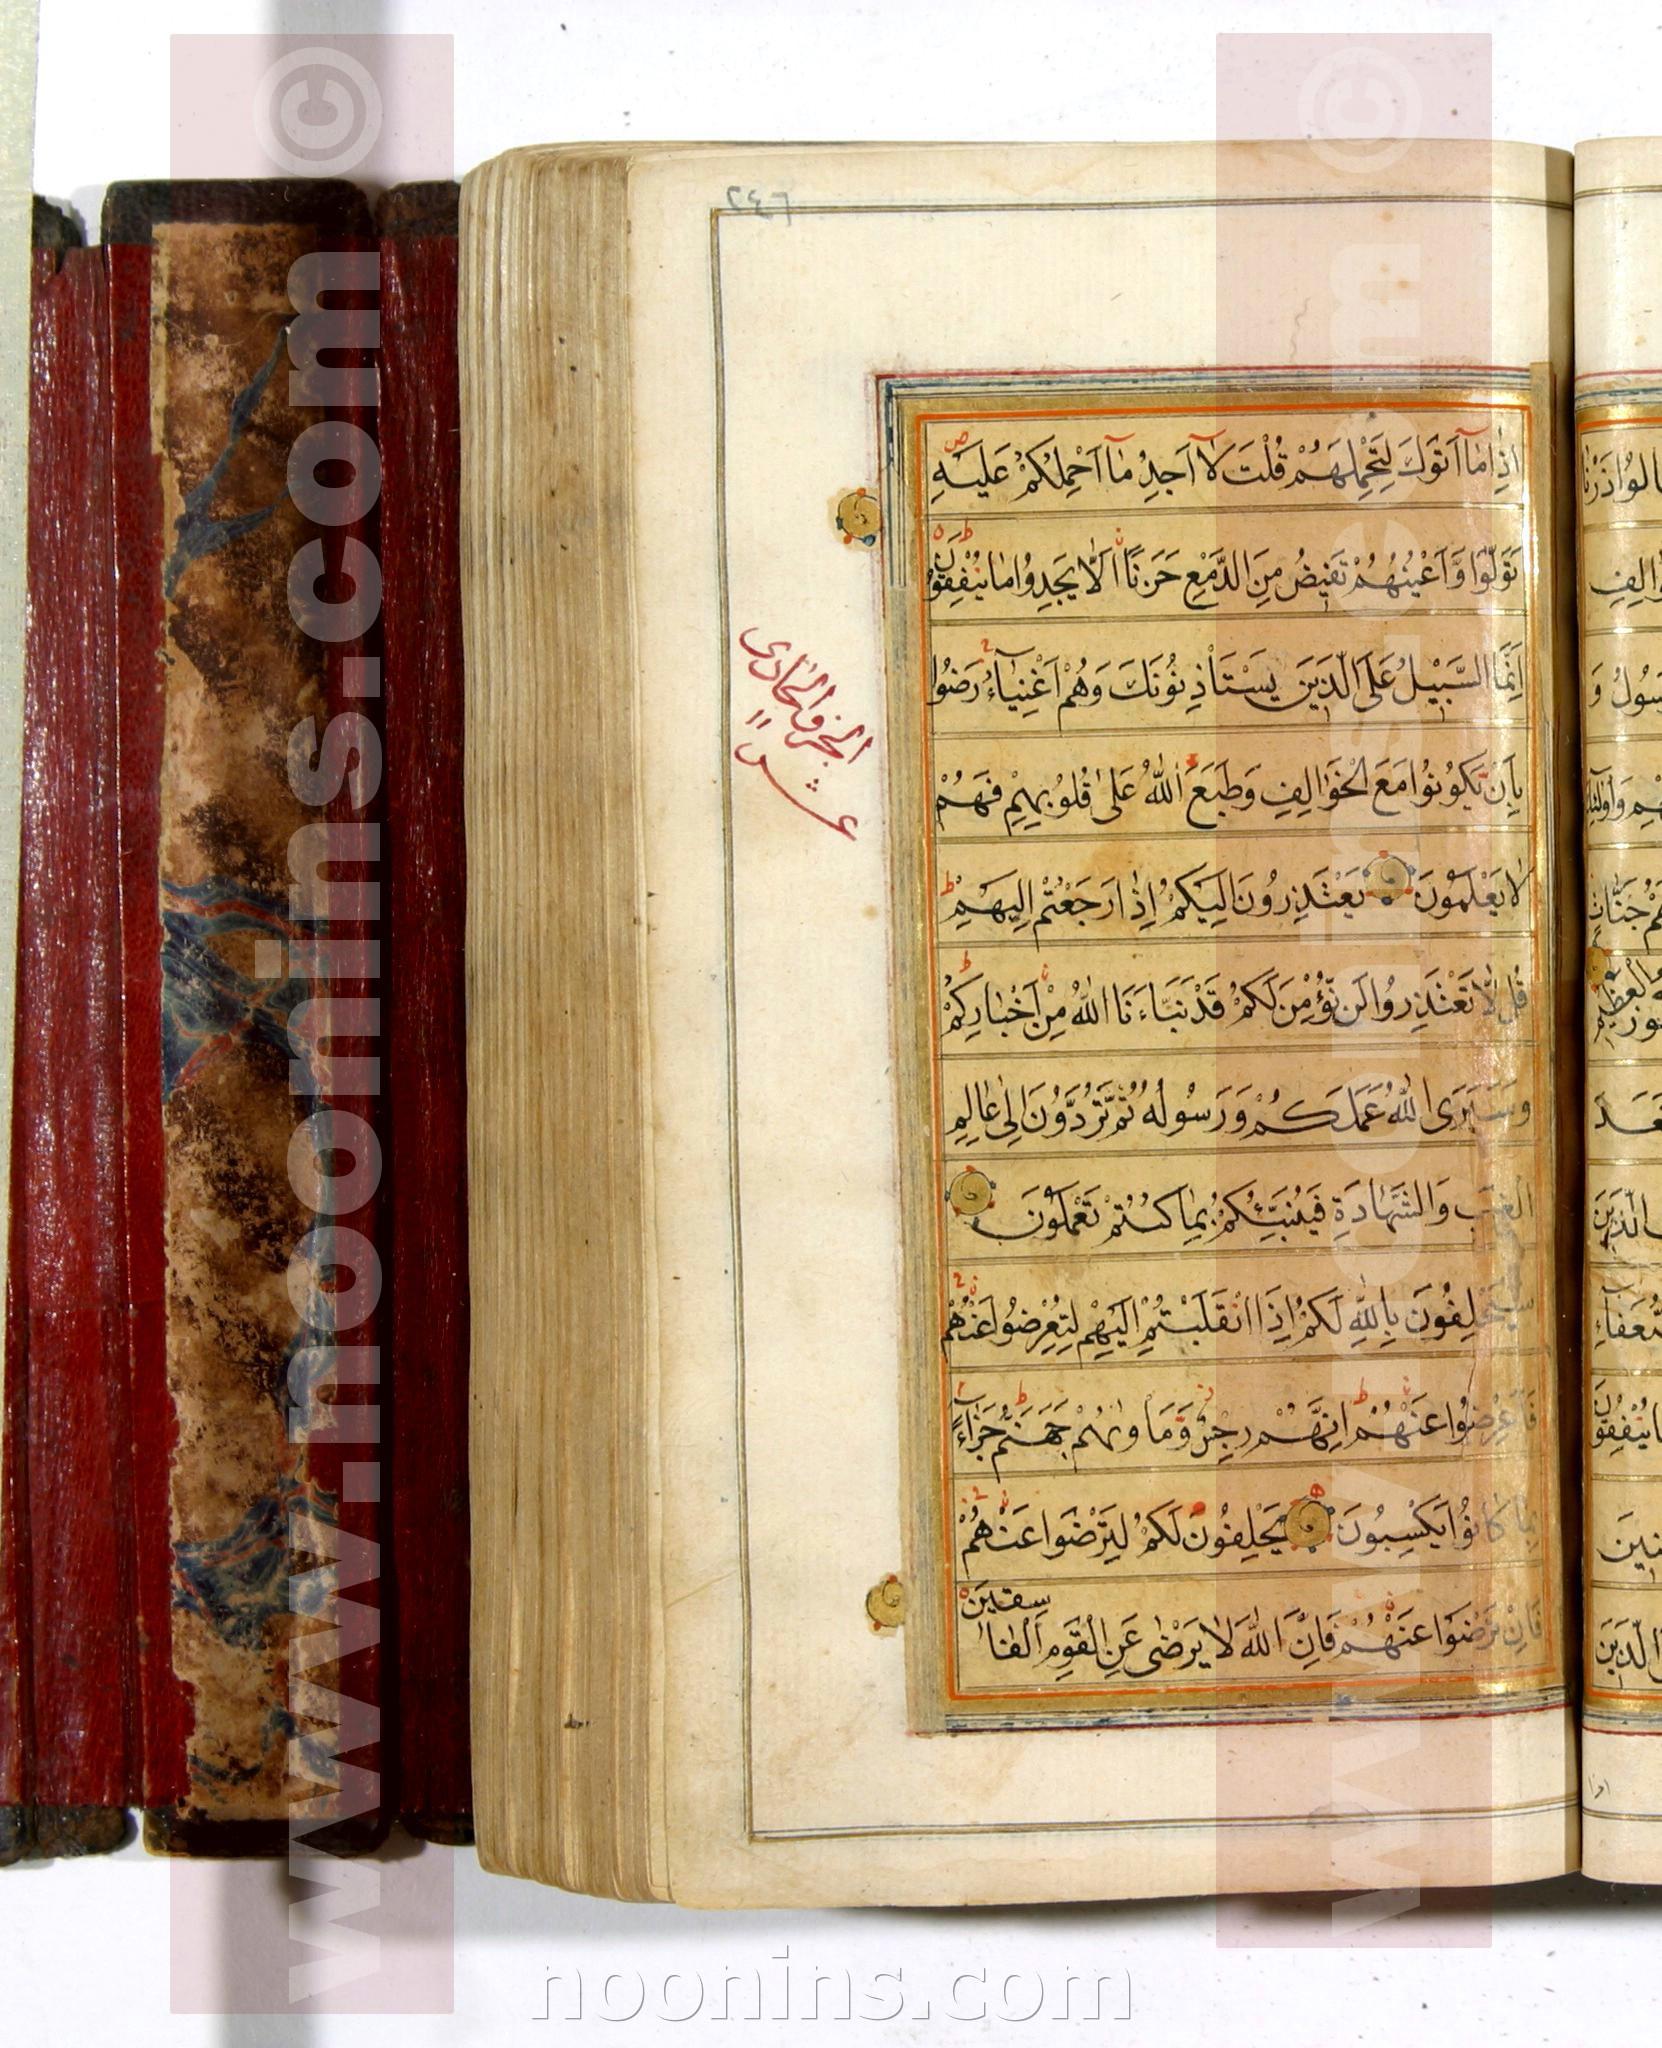 ٢٤٦
اِذٰا مٰآ اَتَوْكَ لِتَحْمِلَهُمْ قُلْتَ لٰآ اَجِدُ مٰآ اَحْمِلُكُمْ عَلَيْهِ
تَوَلَّوْا وَّاَعْيُنُهُمْ تَفيٖضُ مِنَ الدَّمْعِ حَزَنًا اَلّٰا يَجِدُوا مٰا يُنْفِقُونَ
اِنَّمَا السَّبيٖلُ عَلَى الَّذيٖنَ يَسْتَاْذِنُونَكَ وَهُمْ اَغْنِيٰآءُ رَضُوا
بِاَنْ يَّكُونُوا مَعَ الْخَوٰالِفِ وَطَبَعَ اللّٰهُ عَلىٰ قُلُوبِهِمْ فَهُمْ
لٰا يَعْلَمُونَ يَعْتَذِرُونَ اِلَيْكُمْ اِذٰا رَجَعْتُمْ اِلَيْهِمْ
قُلْ لّٰا تَعْتَذِرُوا لَنْ نُّؤْمِنَ لَكُمْ قَدْ نَبَّاَنَا اللّٰهُ مِنْ اَخْبٰارِكُمْ
وَسَيَرَى اللّٰهُ عَمَلَكُمْ وَرَسُولُهُ ثُمَّ تُرَدُّونَ اِلىٰ عٰالِمِ
الْغَيْبِ وَالشَّهٰادَةِ فَيُنَبِّئُكُمْ بِمٰا كُنْتُمْ تَعْمَلُونَ
سَيَحْلِفُونَ بِاللّٰهِ لَكُمْ اِذَا انْقَلَبْتُمْ اِلَيْهِمْ لِتُعْرِضُوا عَنْهُمْ
فَاَعْرِضُوا عَنْهُمْ اِنَّهُمْ رِجْسٌ وَّمَاْوٰىهُمْ جَهَنَّمُ جَزٰآءً
بِمٰا كٰانُوا يَكْسِبُونَ يَحْلِفُونَ لَكُمْ لِتَرْضَوْا عَنْهُمْ
فَاِنْ تَرْضَوْا عَنْهُمْ فَاِنَّ اللّٰهَ لٰا يَرْضىٰ عَنِ الْقَوْمِ الْفٰاسِقيٖنَ
الجزؤ الحادى
عشر
www.noonins.com ©
www.noonins.com ©
noonins.com